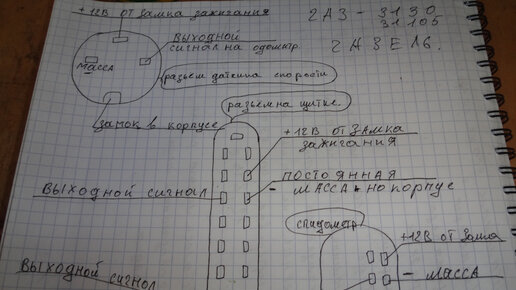 +12В от замка зажигания
ГАЗ - 3130
31105
ГАЗЕ16.
выходной
сигнал на одометр.
масса
разъем датчика скорости
замок в корпусе
разъем на щитке.
+12В от замка
зажигания
постоянная
- масса на корпус
выходной сигнал
спидометр
+12В от замка
- масса
выходной сигнал